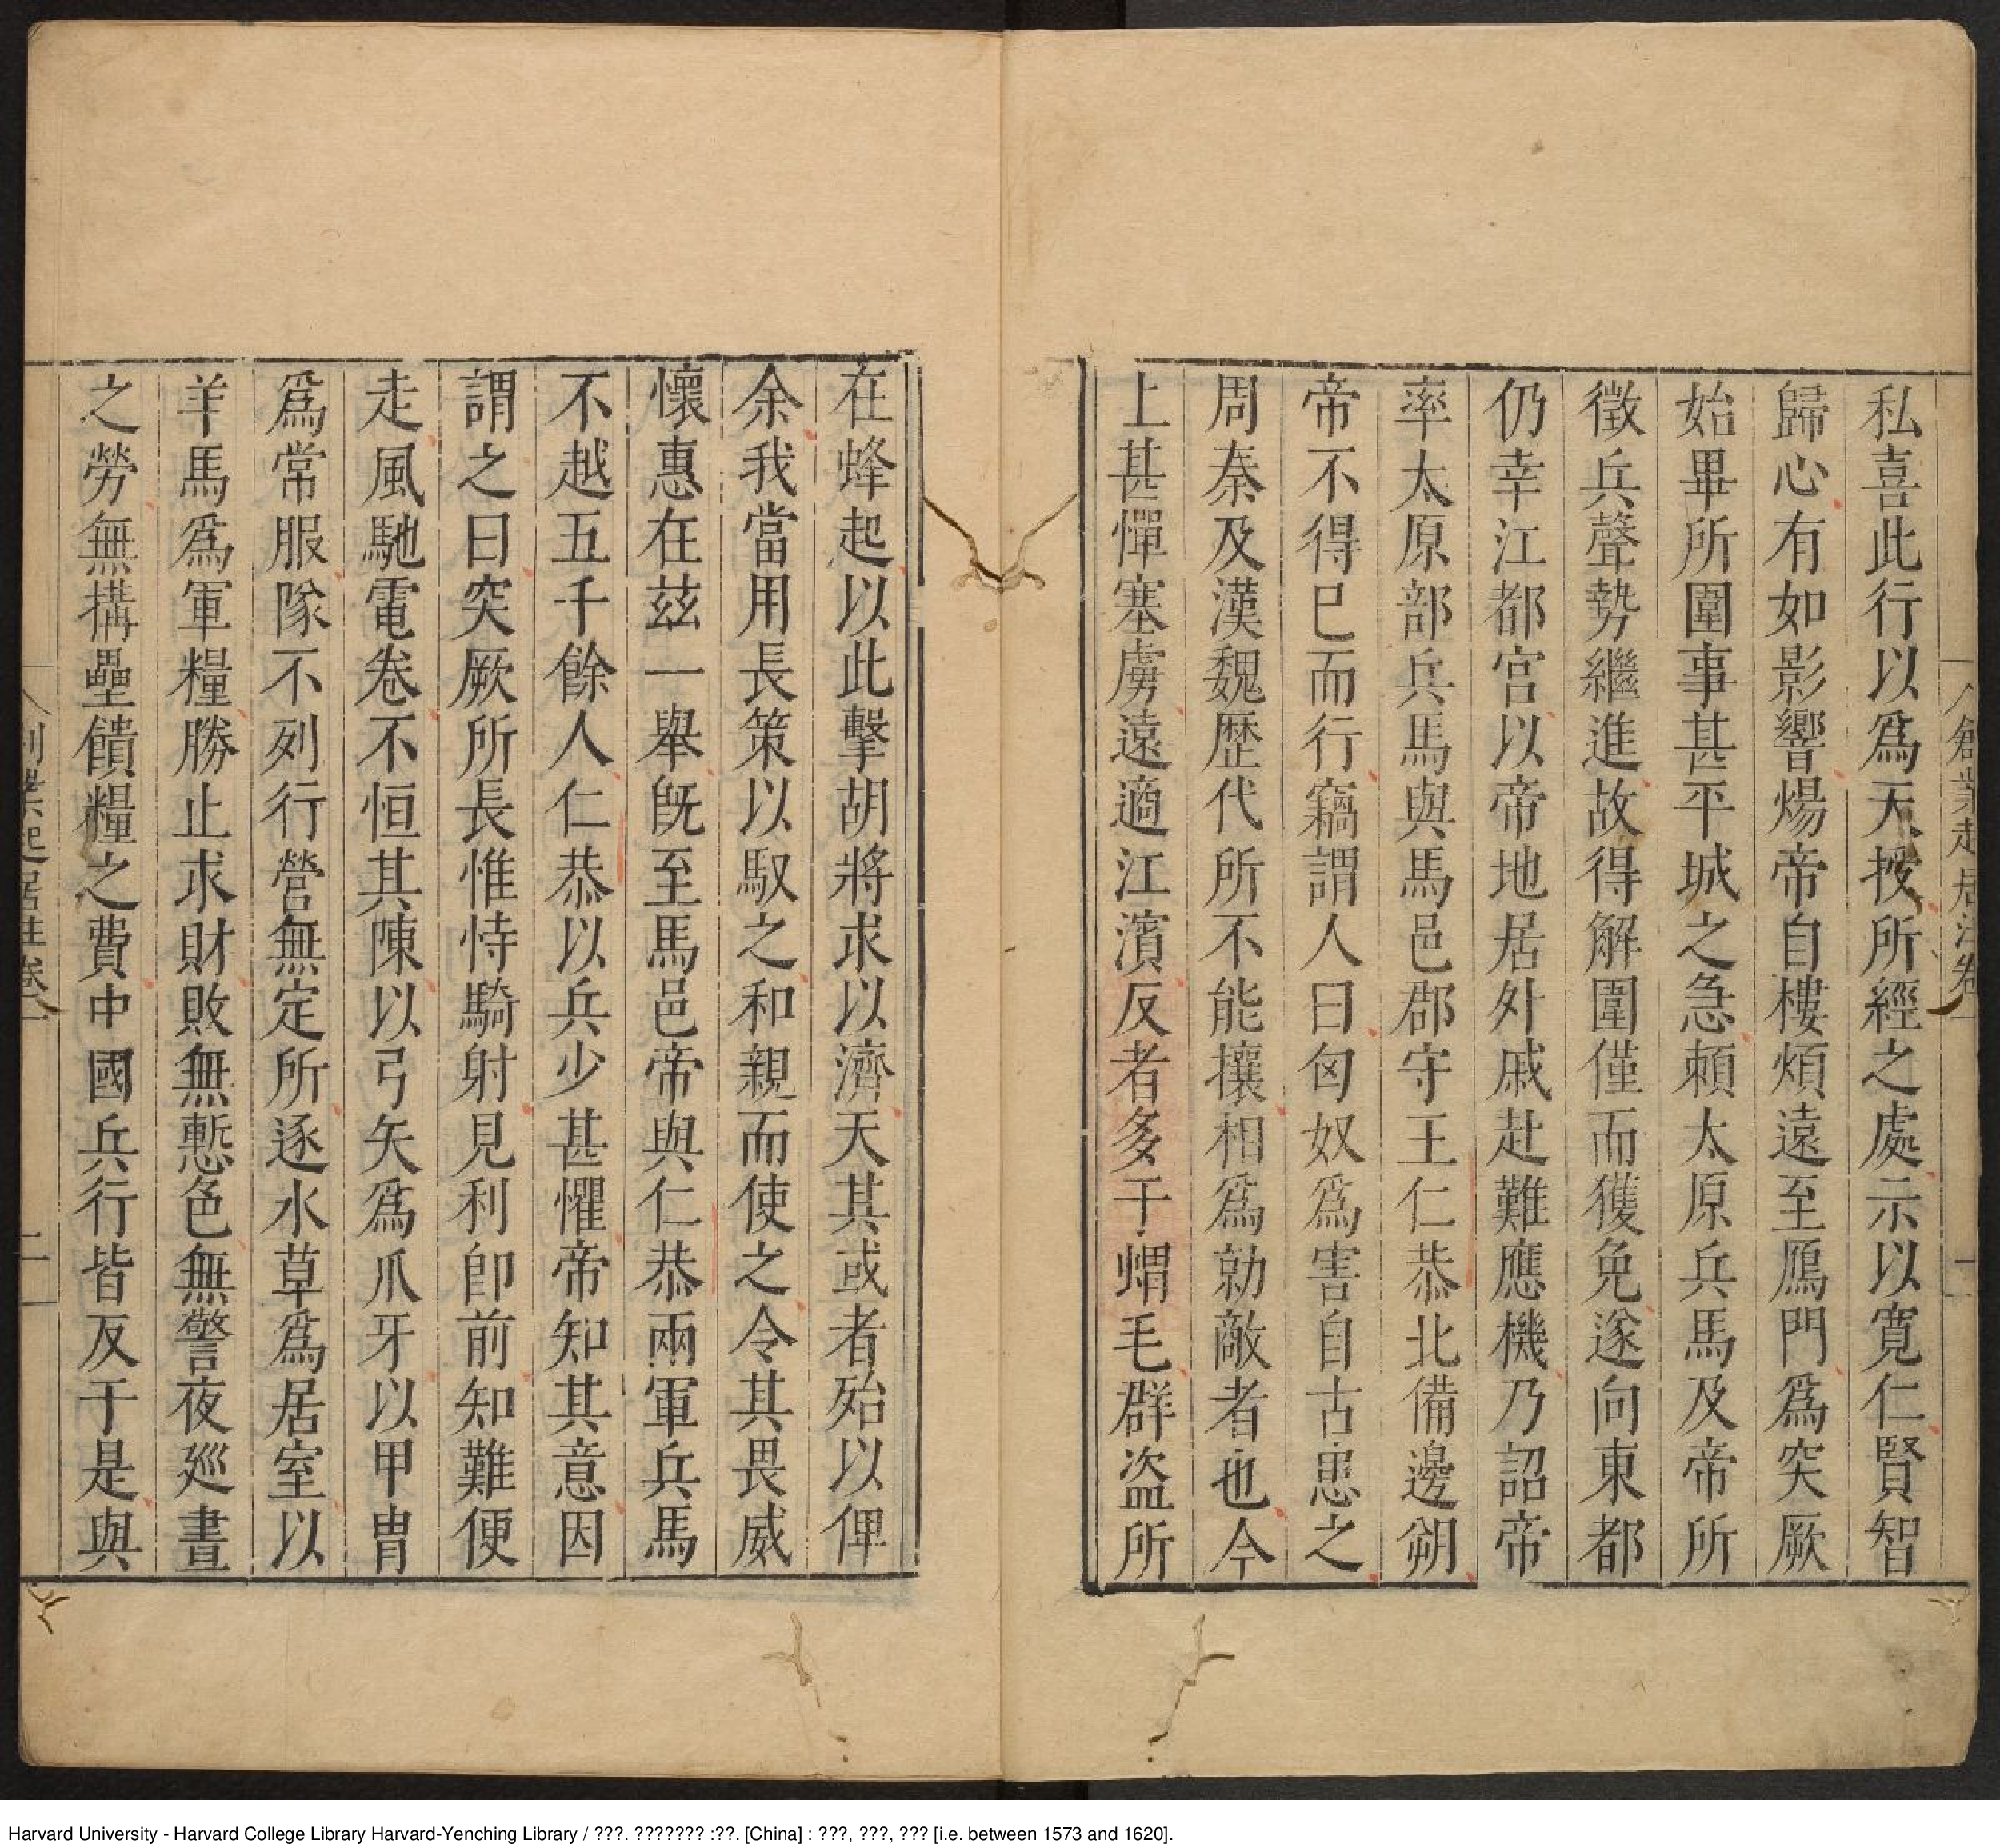 私喜此行以爲天授所經之處示以寬仁賢智
歸心有如影響煬帝自樓煩遠至鴈門爲突厥
始畢所圍事甚平城之急賴太原兵馬及帝所
徵兵聲勢繼進故得解圍僅而獲免遂向東都
仍幸江都宮以帝地居外戚赴難應機乃詔帝
率太原部兵馬與馬邑郡守王仁恭北備邊朔
帝不得已而行竊謂人曰匈奴爲害自古患之
周秦及漢魏歷代所不能攘相爲勍敵者也今
上甚憚塞虜遠適江濱反者多于蝟毛群盜所
創業起居注卷一
一
在蜂起以此擊胡將求以濟天其或者殆以俾
余我當用長策以馭之和親而使之令其畏威
懷惠在茲一舉旣至馬邑帝與仁恭兩軍兵馬
不越五千餘人仁恭以兵少甚懼帝知其意因
謂之曰突厥所長惟恃騎射見利卽前知難便
走風馳電卷不恒其陳以弓矢爲爪牙以甲冑
爲常服隊不列行營無定所逐水草爲居室以
羊馬爲軍糧勝止求財敗無慙色無警夜廵晝
之勞無搆壘饋糧之費中國兵行皆反于是與
創業起居注卷一
二
Harvard University - Harvard College Library Harvard-Yenching Library / ???. ??????? :??. [China] : ???, ???, ??? [i.e. between 1573 and 1620].